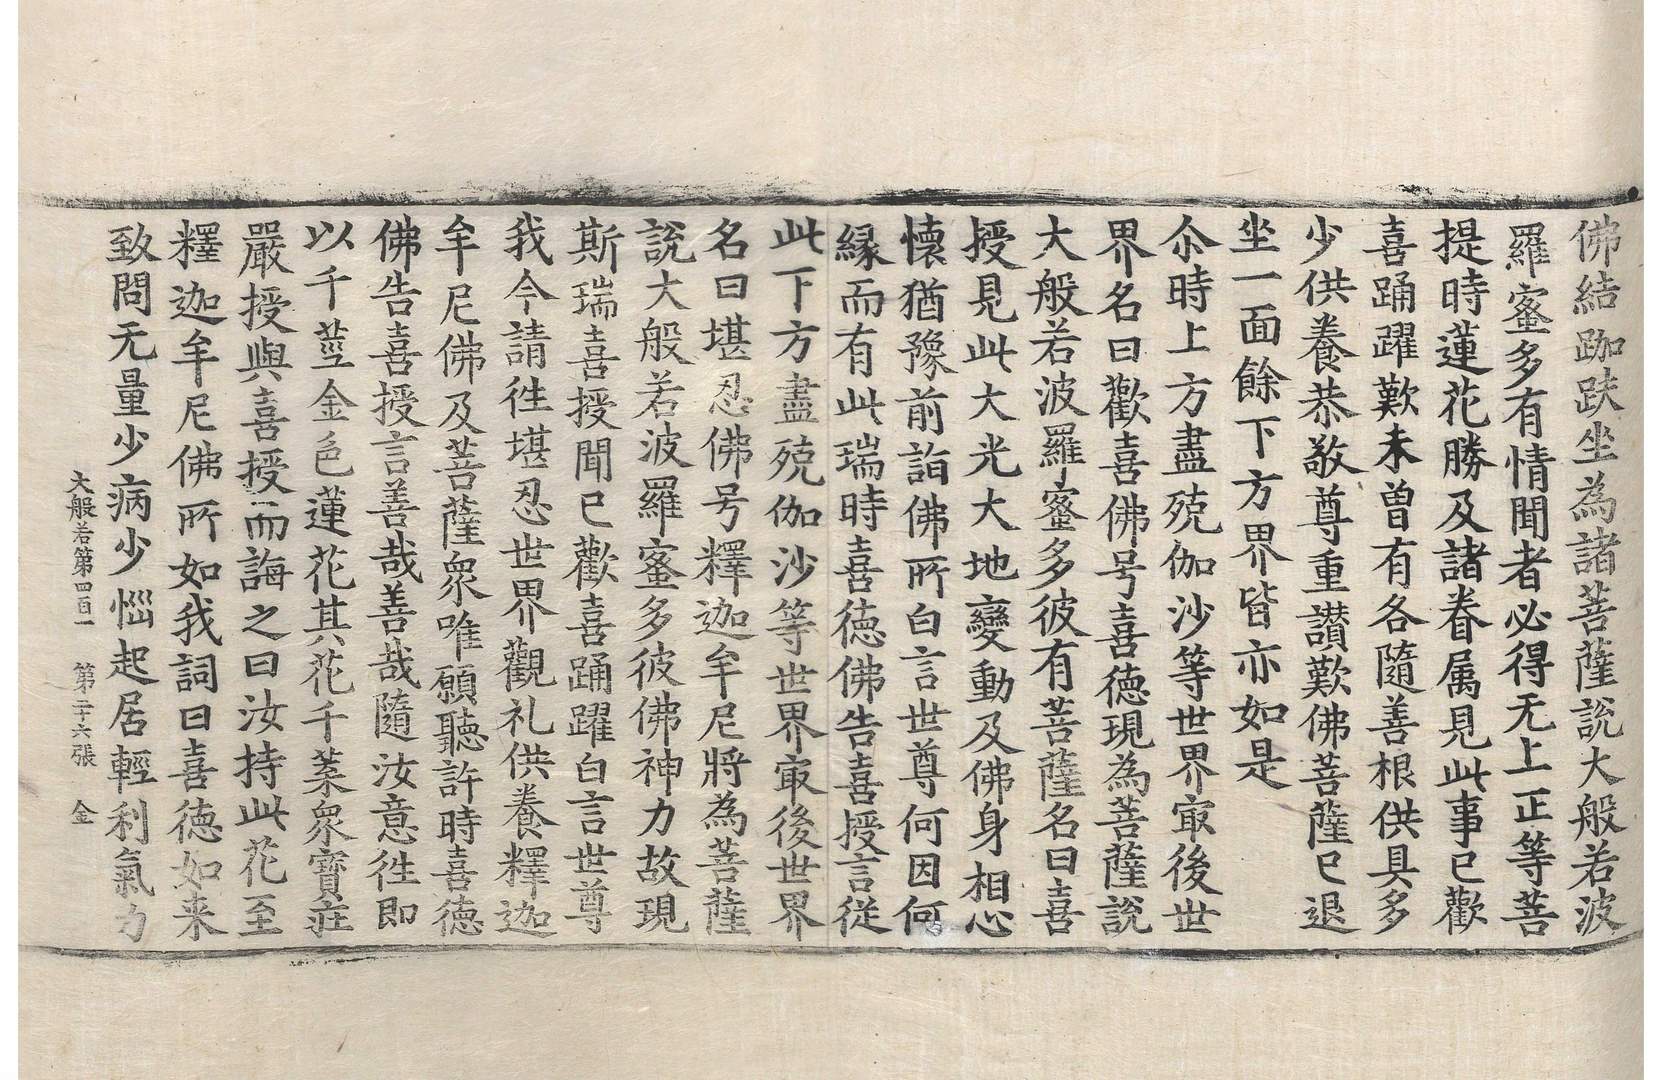 佛結跏趺坐為諸菩薩說大般若波
羅蜜多有情聞者必得无上正等菩
提時蓮花勝及諸眷属見此事已歡
喜踊躍歎未曾有各隨善根供具多
少供養恭敬尊重讃歎佛菩薩已退
坐一面餘下方界皆亦如是
尒時上方盡殑伽沙等世界㝡後世
界名曰歡喜佛号喜德現為菩薩說
大般若波羅蜜多彼有菩薩名曰喜
授見此大光大地變動及佛身相心
懷猶豫前詣佛所白言世尊何因何
緣而有此瑞時喜德佛告喜授言從
此下方盡殑伽沙等世界㝡後世界
名曰堪忍佛号釋迦牟尼將為菩薩
說大般若波羅蜜多彼佛神力故現
斯瑞喜授聞已歡喜踊躍白言世尊
我今請徃堪忍世界觀礼供養釋迦
牟尼佛及菩薩衆唯願聽許時喜德
佛告喜授言善哉善哉隨汝意徃即
以千莖金色蓮花其花千葉衆寶莊
嚴授與喜授而誨之曰汝持此花至
釋迦牟尼佛所如我詞曰喜德如来
致問无量少病少惱起居輕利氣力
大般若第四百一　第二十六張　金